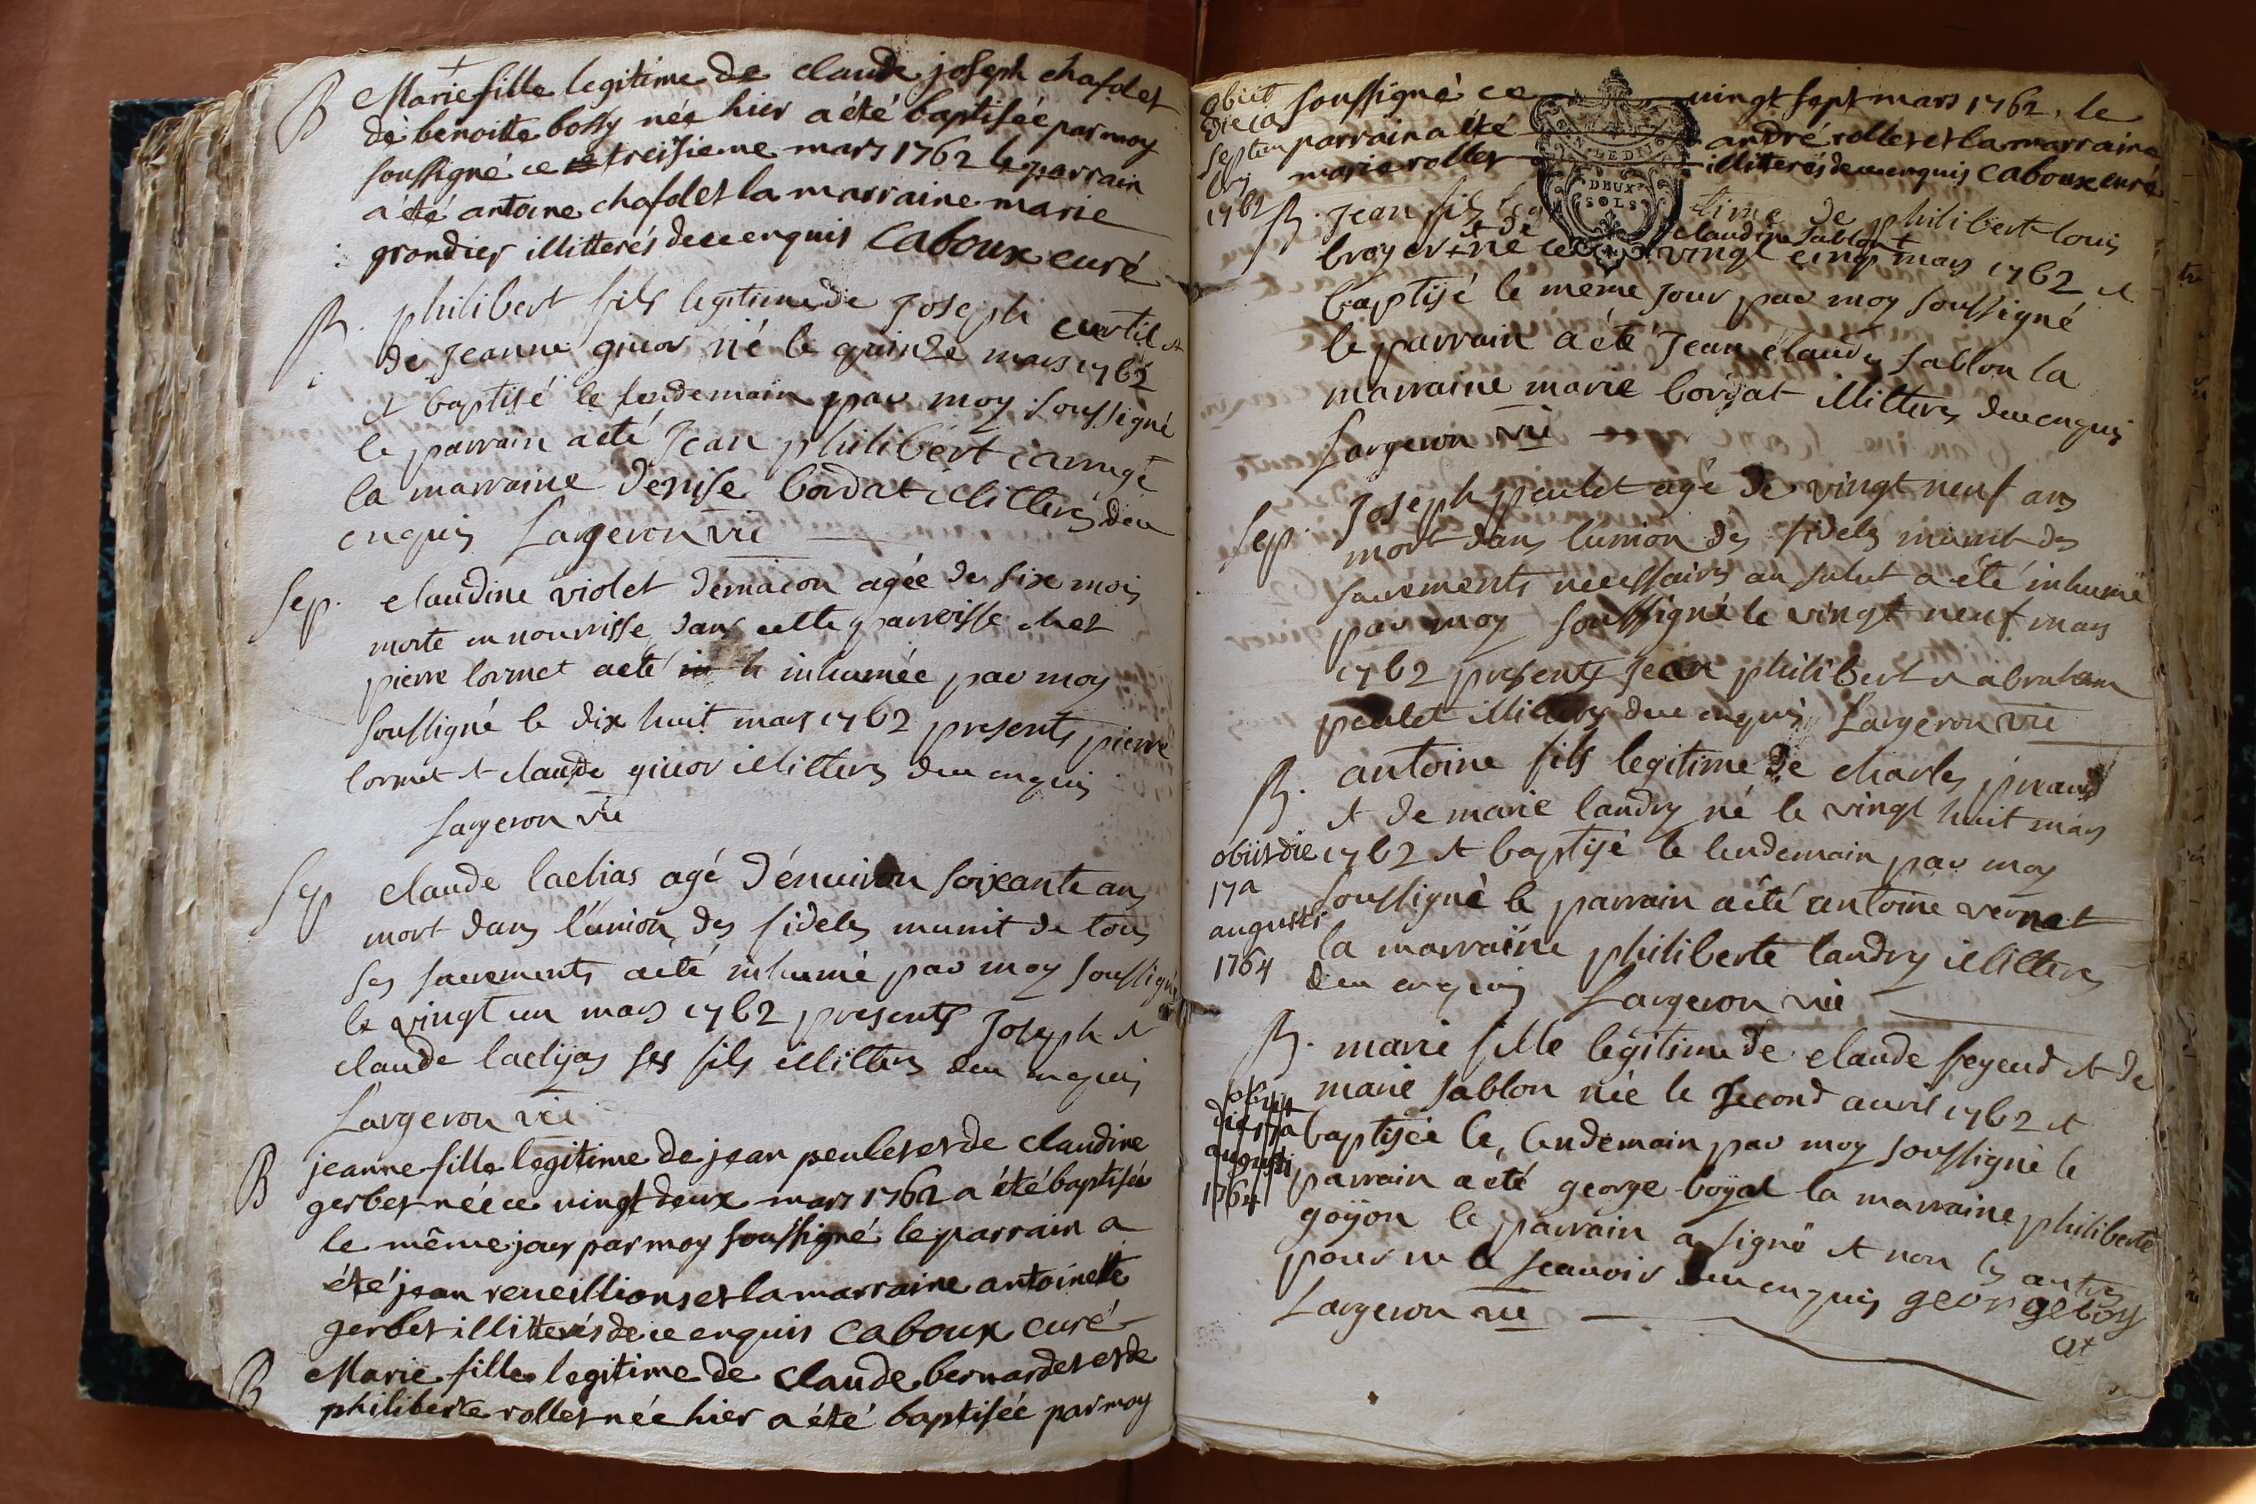 +
B Marie fille legitime de claude joseph chafolet
de benoitte bossy née hier a été baptisée par moy
soussigné ce treisieme mars 1762 le parrain
a été antoine chafolet la marraine marie
grondier illitterés de ce enquis Caboux curé
B. philibert fils legitime de Joseph curtil et
de Jeanne guior né le quinze mars 1762
et baptisé le lendemain par moy soussigné
le parrain a eté Jean philibert carruge
la marraine denise bordat illitterés de ce
enquis Largeron vic
Sep. claudine violet demacon agée de six mois
morte en nourrisse dans cette parroisse chet
pierre lormet a eté inhumée par moy
soussigné le dix huit mars 1762 presents pierre
lormet et claude guior illitterés de ce enquis
Largeron vic
Sep claude lachas agé d'environ soixante ans
mort dans l'union des fideles munit de tous
ses sacrements a eté inhumé par moy soussigné
le vingt un mars 1762 presents Joseph et
claude ses fils illitterés de ce enquis
Largeron vic
B jeanne fille legitime de jean peulet et de claudine
gerbet née ce vingt deux mars 1762 a été baptisée
le même jour par moy soussigné le parrain a
été jean reveillion et la marraine antoinette
gerbet illitterés de ce enquis Caboux curé
B Marie fille legitime de claude bernardet et de
philiberte rollet née hier a été baptisée par moy
obiit
die 1a
septem
bris
1762
soussigné ce vingt sept mars 1762. le
parrain a été andré rollet et la marraine
marie rollet illitterés de ce enquis Caboux curé
DEUX
SOLS
B. Jean fils legitime de philibert louis
broyer + né ce vingt cinq mars 1762 et
+ et de claudine sablon
baptisé le meme jour par moy soussigné
le parrain a été Jean claude sablon la
marraine marie borjat illitterés de ce enquis
Largeron vic
Sep. Joseph peulet agé de vingt neuf ans
mort dans l'union des fideles munit des
sacrements necessaires au salut a été inhumé
par moy soussigné le vingt neuf mars
1762 presents Jean philibert et abraham
peulet illitterés de ce enquis Largeron vic
B. antoine fils legitime de charles
et de marie landry né le vingt huit mars
1762 et baptisé le lendemain par moy
soussigné le parrain a eté antoine vernat
la marraine philiberte landry illitterés
de ce enquis Largeron vic
obiit die
17a
augusti
1764
B. marie fille legitime de claude feyeud et de
marie sablon née le second avril 1762 et
baptisée le lendemain par moy soussigné le
parrain a eté george boyat la marraine philiberte
goyon le parrain a signé et non les autres
pour ne le scavoir de ce enquis george boy
at
Largeron vic
obiit
die 17a
augusti
1764